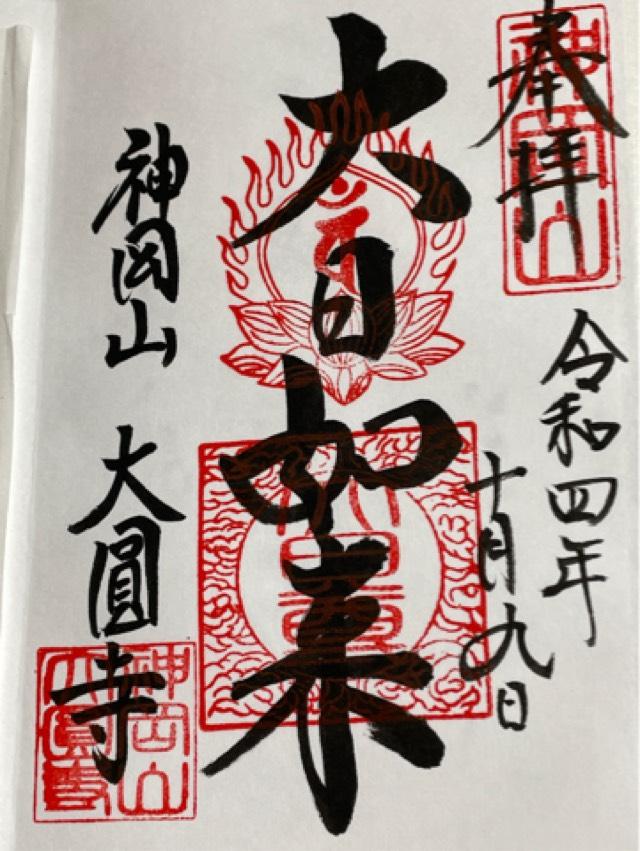 奉拝
神岡山
令和四年
十月九日
大日如来
神岡山 大圓寺
神岡山
大圓寺